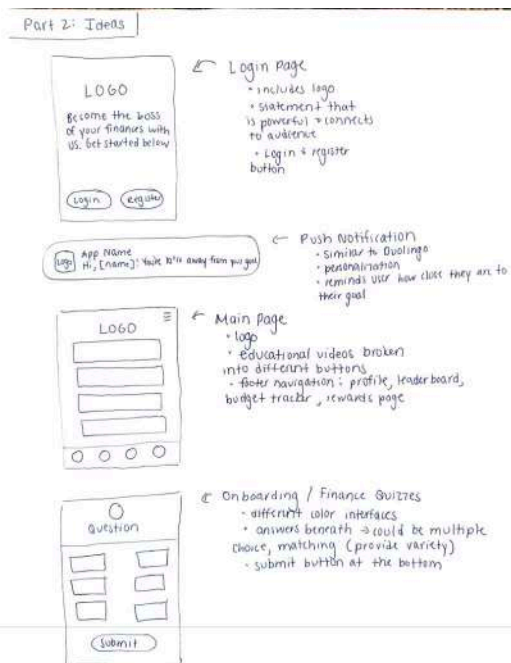 Part 2: Ideas
LOGO
Become the boss
of your finances with
us. Get started below
Login
Register
Login Page
• includes logo
• statement that
is powerful + connects
to audience
• Login & register
button
Logo
App Name
Hi, [name]! You're 10% away from your goal
Push Notification
• similar to Duolingo
• personalization
• reminds user how close they are to
their goal
LOGO
Main Page
• logo
• educational videos broken
into different buttons
• footer navigation: profile, leaderboard,
budget tracker, rewards page
Question
Submit
Onboarding / Finance Quizzes
• different color interfaces
• answers beneath → could be multiple
choice, matching (provide variety)
• submit button at the bottom